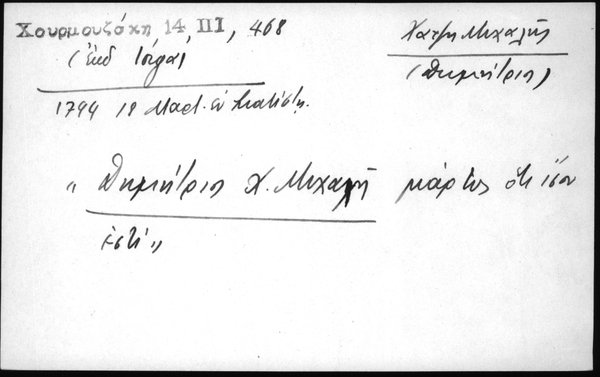 Χουρμουζάκη 14, III, 468
(ἐκδ Ἰόργα)
Χατζη Μιχαλῆς
(Δημήτριος)
1794 18 Μαρτ. ἐν
" Δημήτριος Χ. Μιχαλῆ μάρτυς ὅτι ἴσον
ἐστὶ "